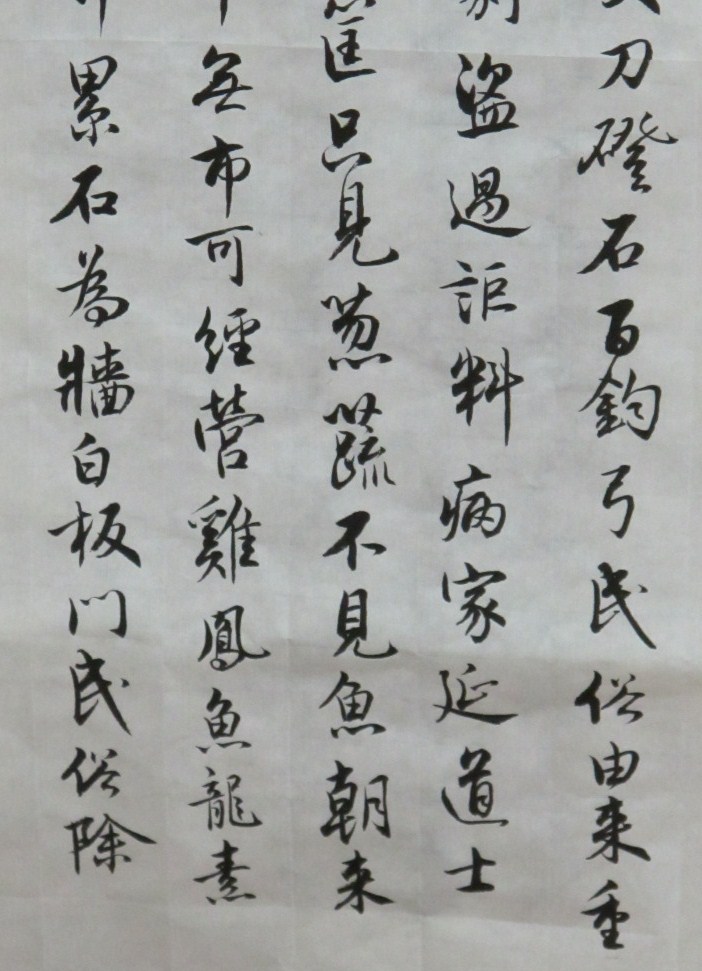 刀磴石百鈞弓民俗由来重
盗過詎料病家延道士
筐只見葱蔬不見魚朝来
無布可經營雞鳳魚龍素
累石為牆白板門民俗除